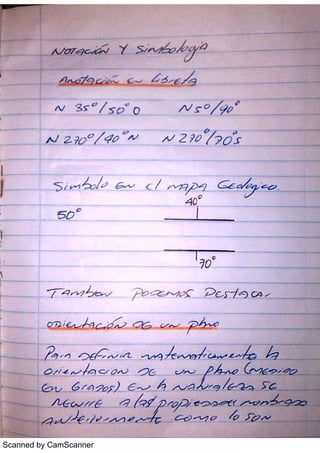 Notación y Simbología
Anotación en libreta
N 35°/50° O N 5°/90°
N 270°/40°N N 270°/70°S
Simbolo en el mapa Geologico.
40°
50°
70°
Tambien podemos Destacar
orientación de un plano
Para definir matematicamente la
orientacion de un plano (medido
en Grados) en la naturaleza se
requiere a las propiedades nombradas
anteriormente como lo son
Scanned by CamScanner